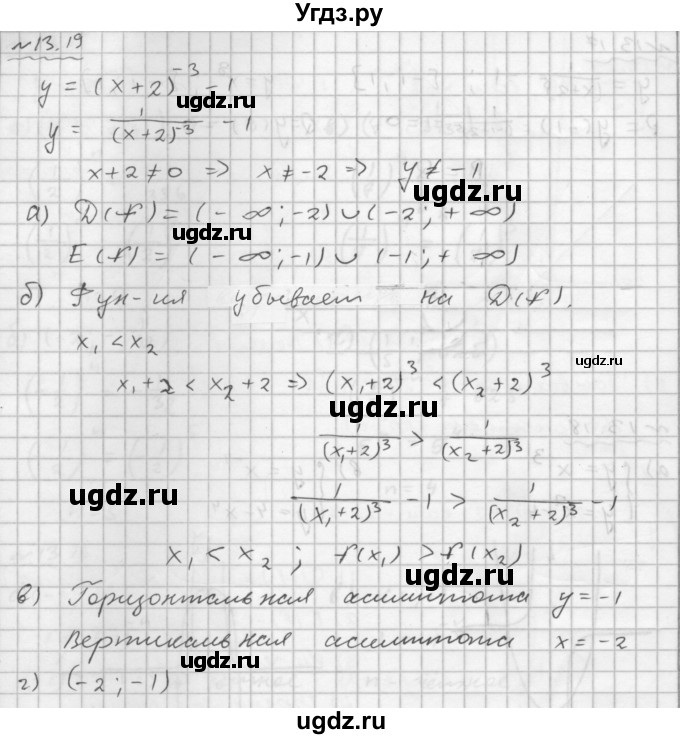 Угдз.ру
№13.19
y = (x+2)^{-3} - 1
ugdz.ru
y = 1/(x+2)^{-3} - 1
x+2≠0 => x≠-2 => y≠-1
ugdz.ru
а) D(f) = (-∞;-2)∪(-2;+∞)
ugdz.ru
E(f) = (-∞;-1)∪(-1;+∞)
б) Фун-ия убывает на D(f).
ugdz.ru
x₁<x₂
ugdz.ru
x₁+2<x₂+2 => (x₁+2)³<(x₂+2)³
ugdz.ru
1/(x₁+2)³ > 1/(x₂+2)³
ugdz.ru
1/(x₁+2)³ - 1 > 1/(x₂+2)³ - 1
x₁<x₂; f(x₁)>f(x₂)
ugdz.ru
в) Горизонтальная асимптота y=-1
Вертикальная асимптота x=-2
ugdz.ru
г) (-2;-1)
ugdz.ru